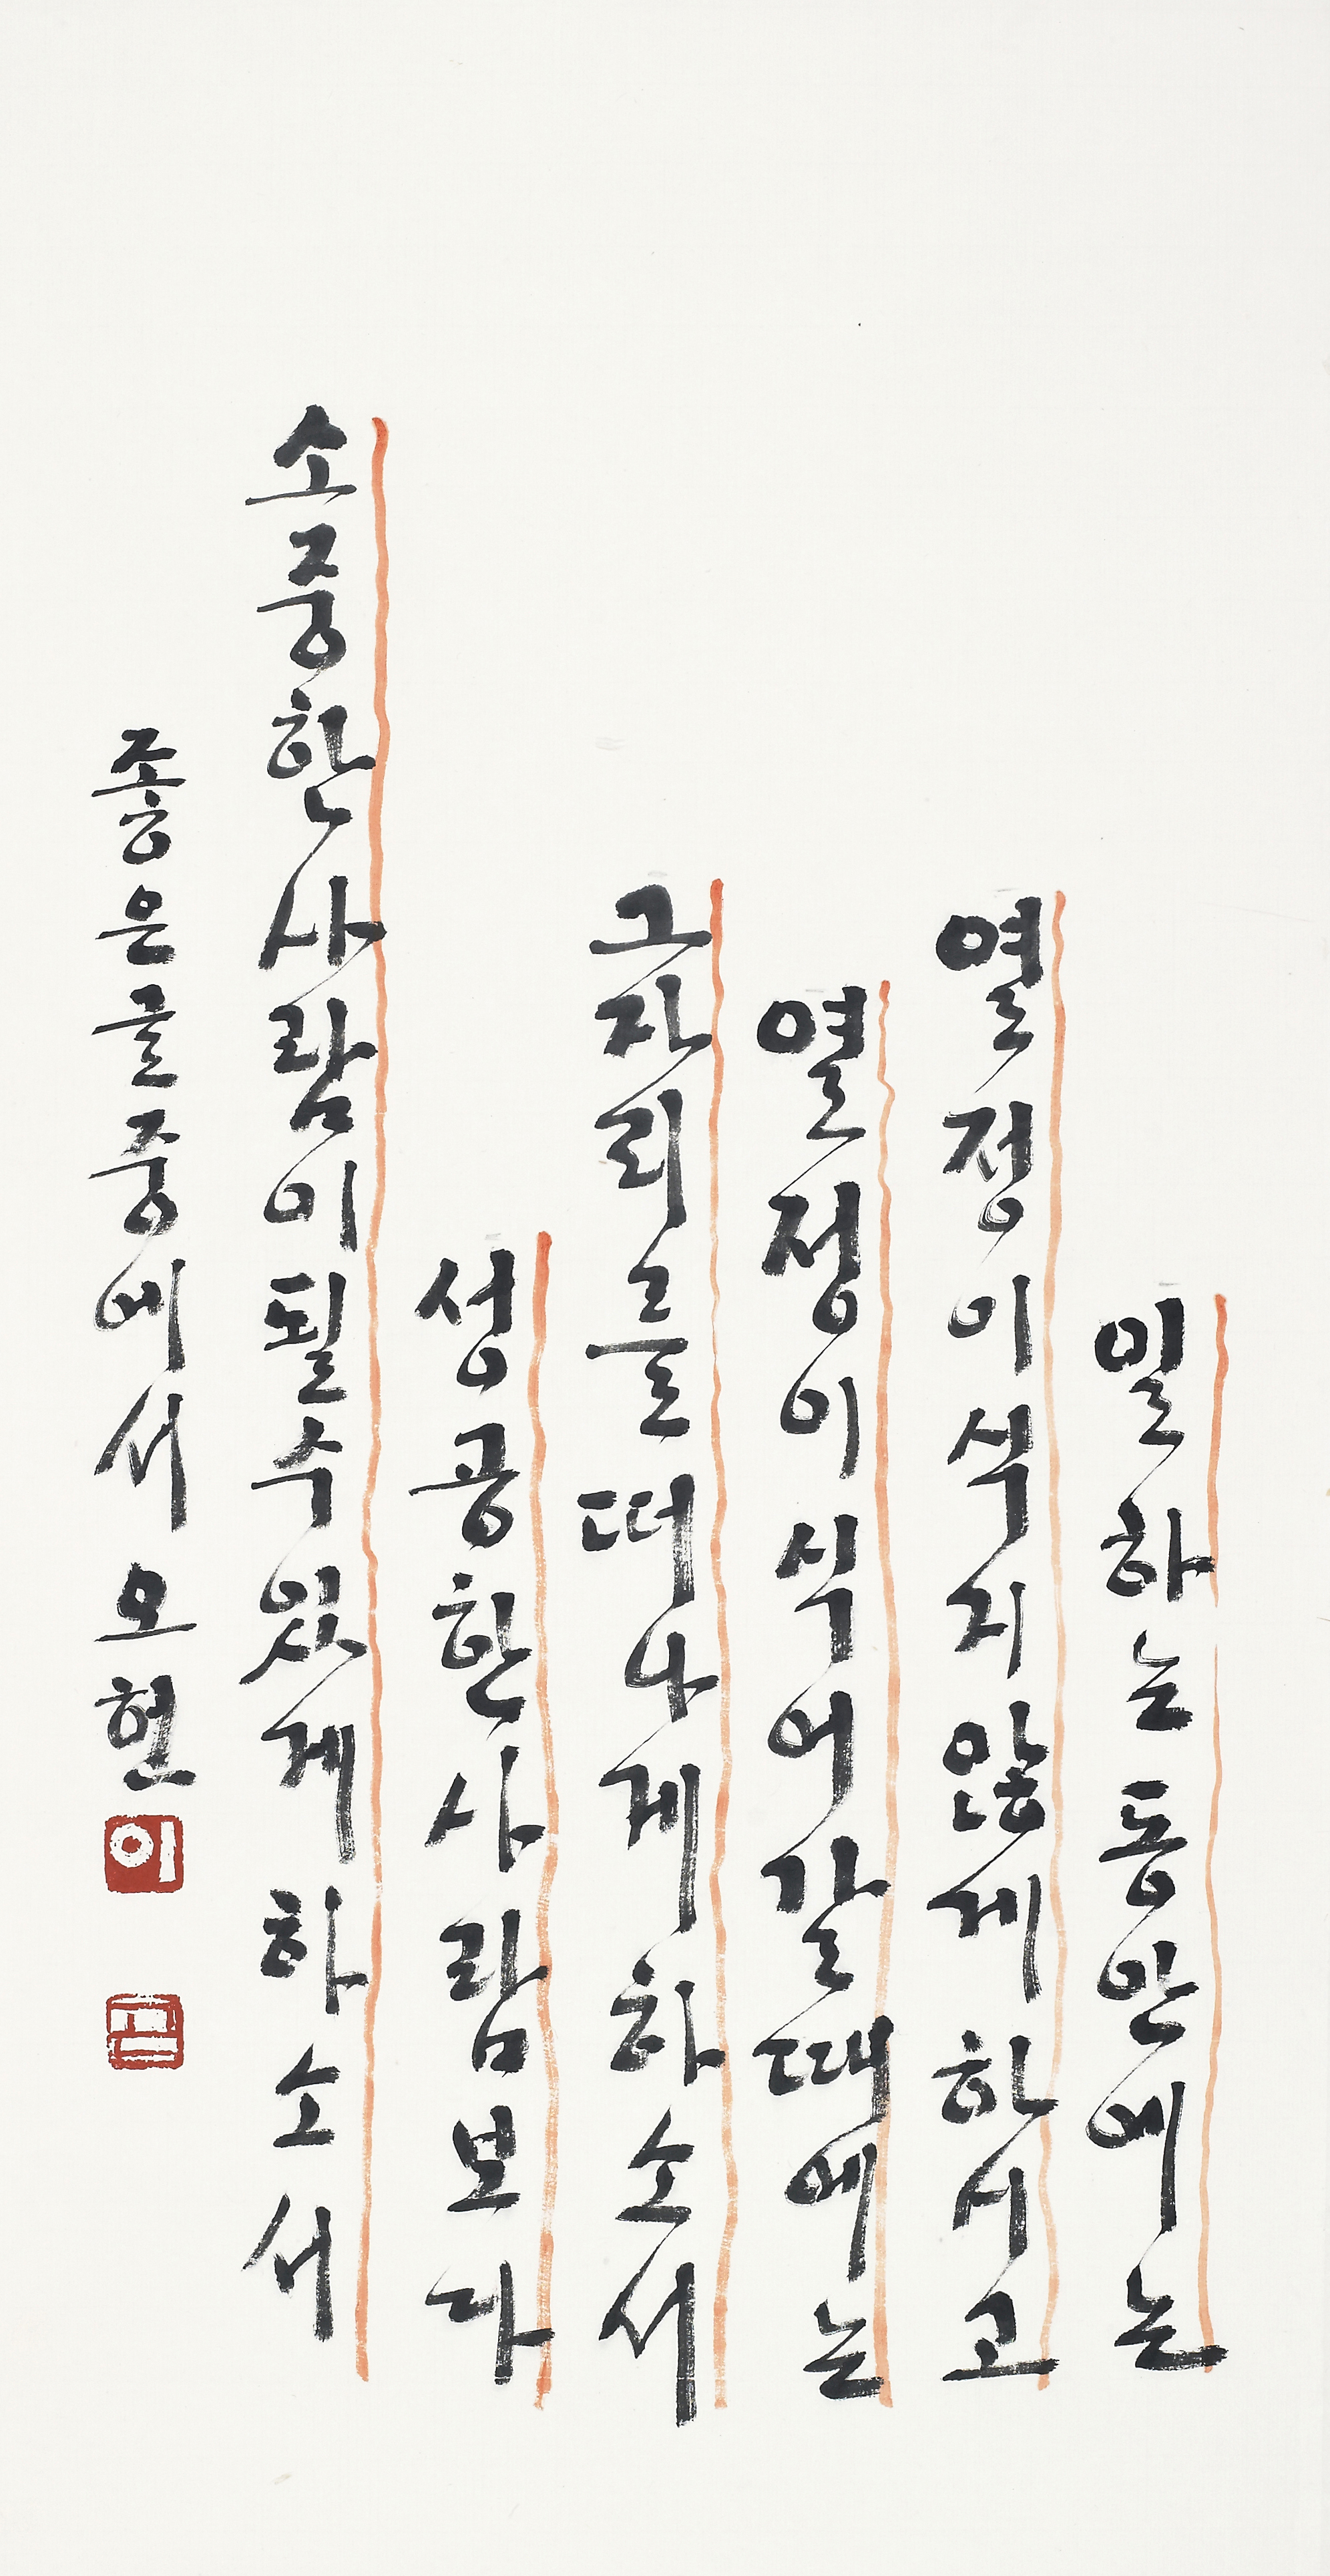 일하는동안에는
열정이식지않게하시고
열정이식어갈때에는
그자리를떠나게하소서
성공한사람보다
소중한사람이될수있게하소서
좋은글중에서 오현
이